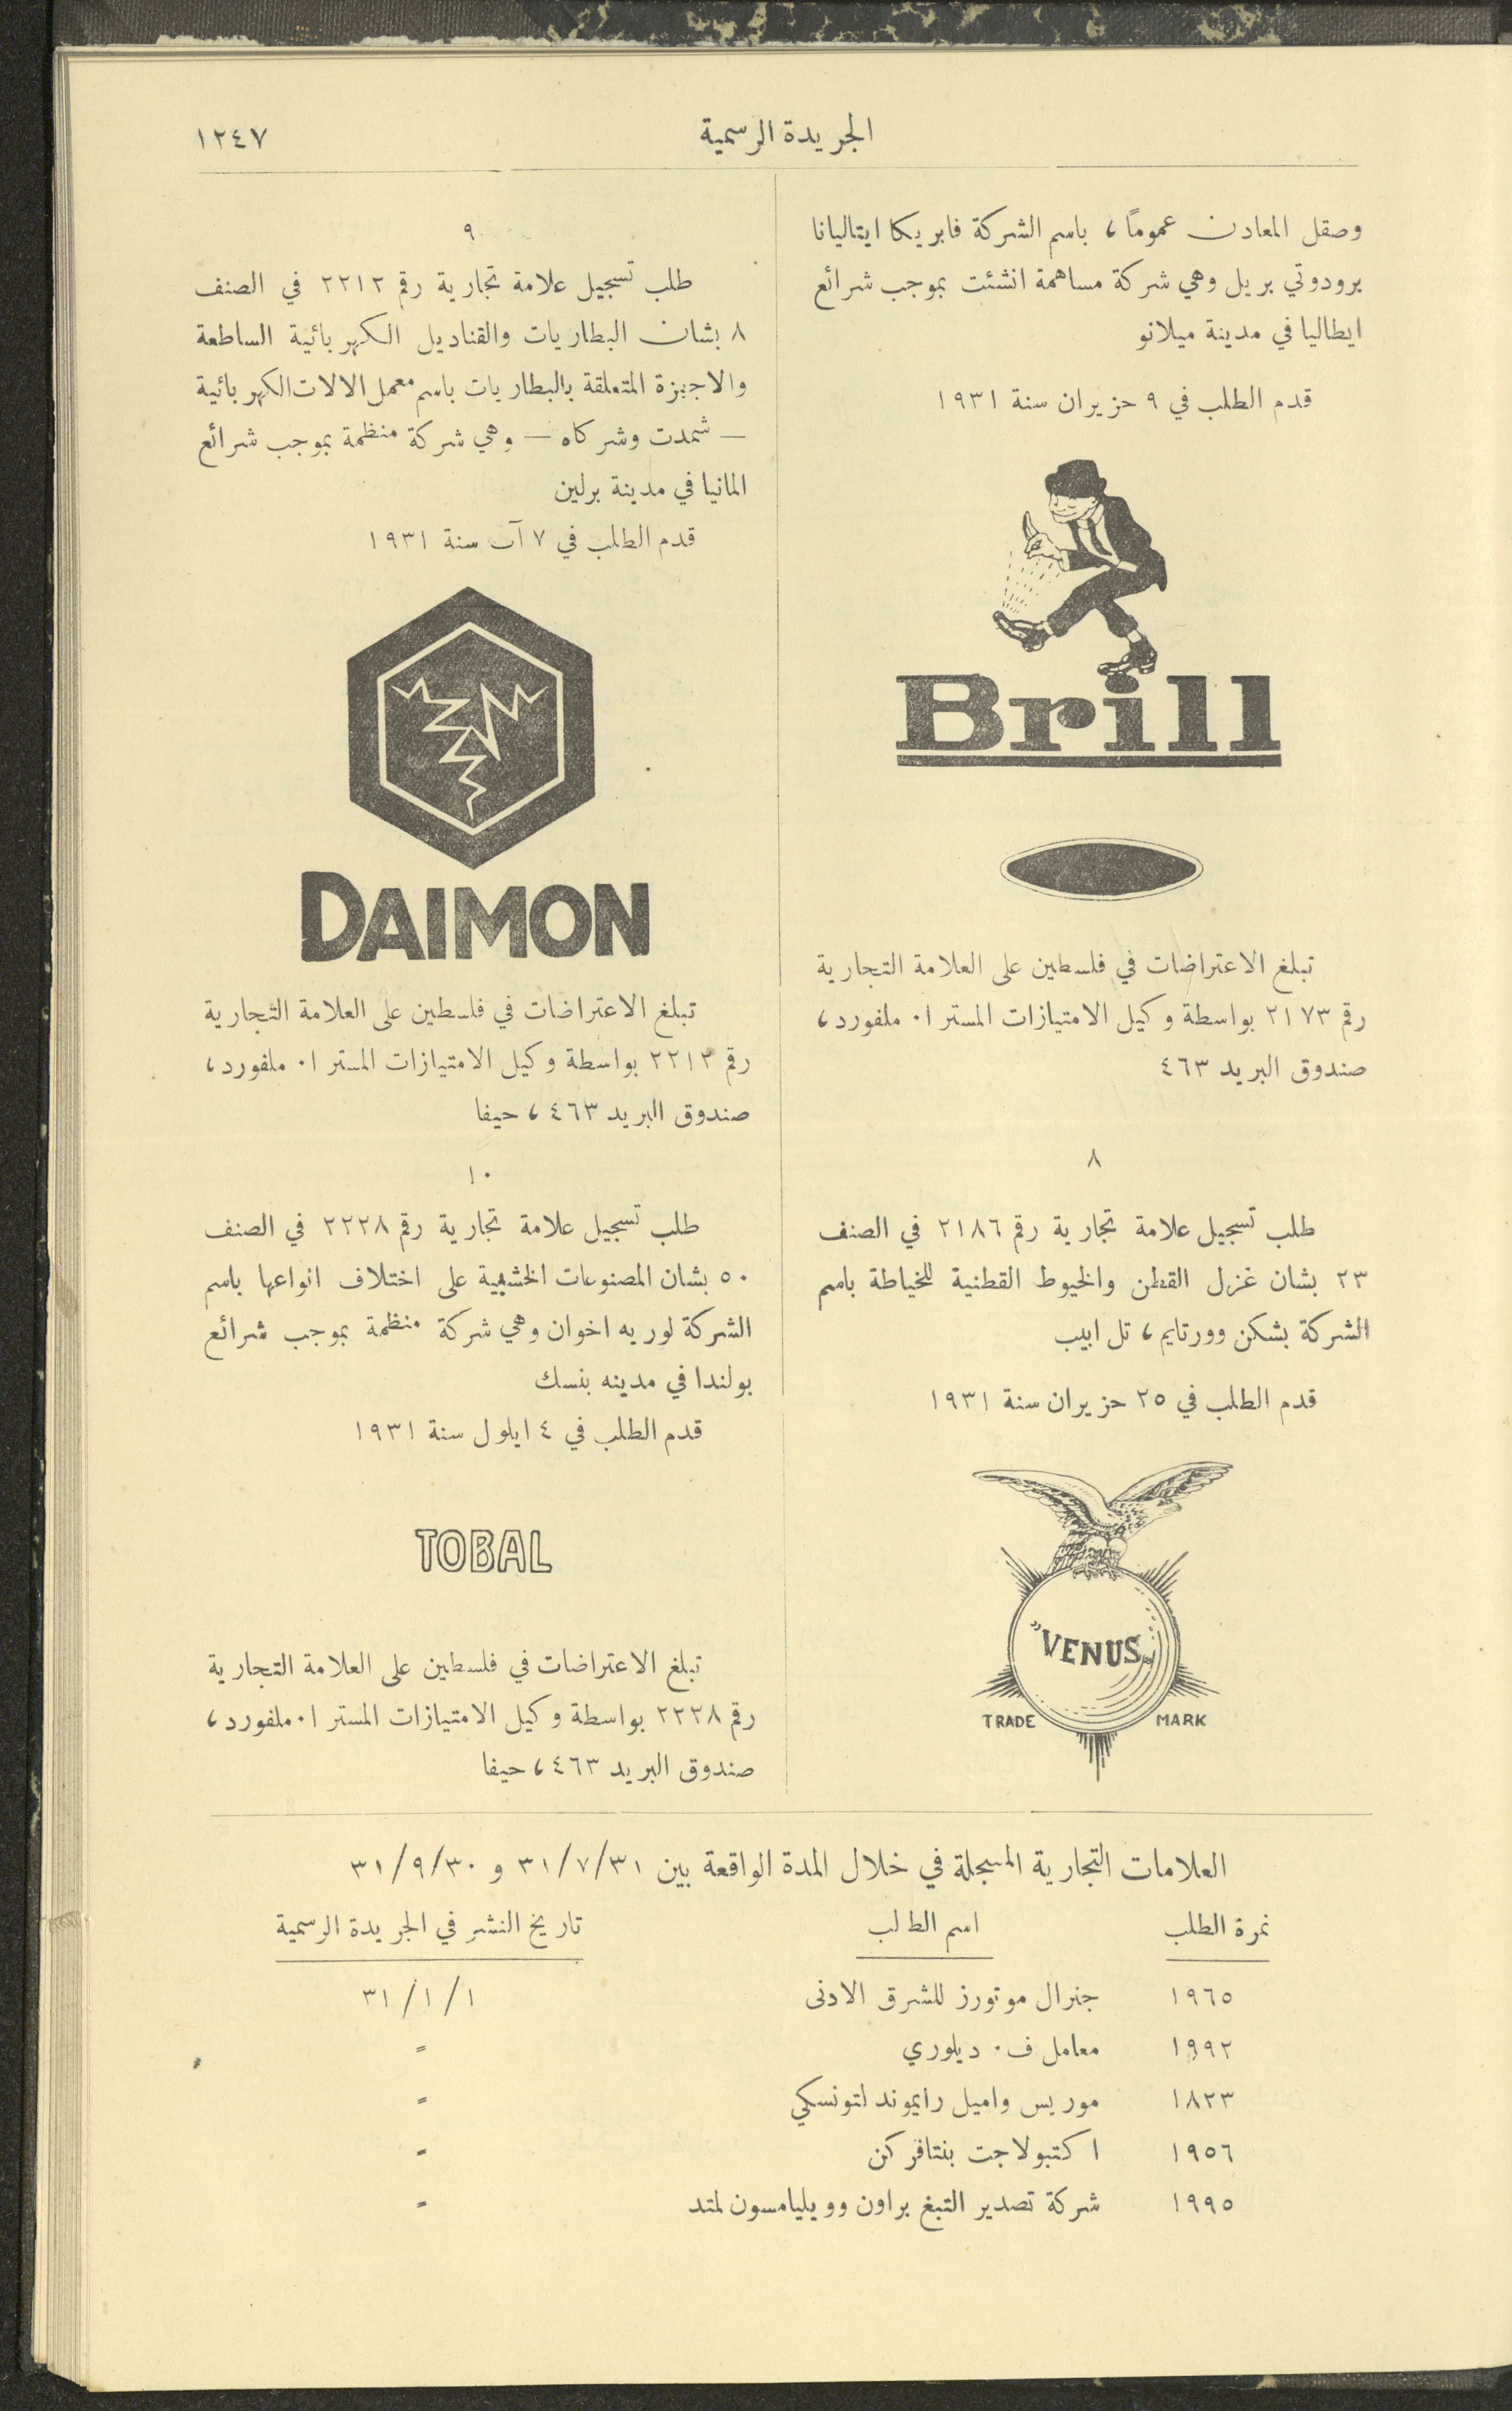 الجريدة الرسمية
١٢٤٧
وصقل المعادن عموماً، باسم الشركة فابريكا ايتاليانا
برودوتي بريل وهي شركة مساهمة انشئت بموجب شرائع
ايطاليا في مدينة ميلانو
قدم الطلب في ٩ حزيران سنة ١٩٣١
Brill
تبلغ الاعتراضات في فلسطين على العلامة التجارية
رقم ٢١٧٣ بواسطة وكيل الامتيازات المستر ا. ملفورد،
صندوق البريد ٤٦٣
٨
طلب تسجيل علامة تجارية رقم ٢١٨٦ في الصنف
٢٣ بشان غزل القطن والخيوط القطنية للخياطة باسم
الشركة بشكن وورتايم، تل ابيب
قدم الطلب في ٢٥ حزيران سنة ١٩٣١
"VENUS"
TRADE MARK
٩
طلب تسجيل علامة تجارية رقم ٢٢١٢ في الصنف
٨ بشان البطاريات والقناديل الكهربائية الساطعة
والاجهزة المتعلقة بالبطاريات باسم معمل الالات الكهربائية
— شمدت وشركاه — وهي شركة منظمة بموجب شرائع
المانيا في مدينة برلين
قدم الطلب في ٧ آب سنة ١٩٣١
DAIMON
تبلغ الاعتراضات في فلسطين على العلامة التجارية
رقم ٢٢١٢ بواسطة وكيل الامتيازات المستر ا. ملفورد،
صندوق البريد ٤٦٣، حيفا
١٠
طلب تسجيل علامة تجارية رقم ٢٢٢٨ في الصنف
٥٠ بشان المصنوعات الخشبية على اختلاف انواعها باسم
الشركة لوريه اخوان وهي شركة منظمة بموجب شرائع
بولندا في مدينه بنسك
قدم الطلب في ٤ ايلول سنة ١٩٣١
TOBAL
تبلغ الاعتراضات في فلسطين على العلامة التجارية
رقم ٢٢٢٨ بواسطة وكيل الامتيازات المستر ا. ملفورد،
صندوق البريد ٤٦٣، حيفا
العلامات التجارية المسجلة في خلال المدة الواقعة بين ٣١/٧/٣١ و ٣١/٩/٣٠
نمرة الطلب اسم الطالب تاريخ النشر في الجريدة الرسمية
١٩٦٥ جنرال موتورز للشرق الادنى ٣١/١/١
١٩٩٢ معامل ف. ديلوري =
١٨٢٣ موريس واميل رايموند لتونسكي =
١٩٥٦ اكتبولاجت بنتافركن =
١٩٩٥ شركة تصدير التبغ براون وويليامسون لمتد =